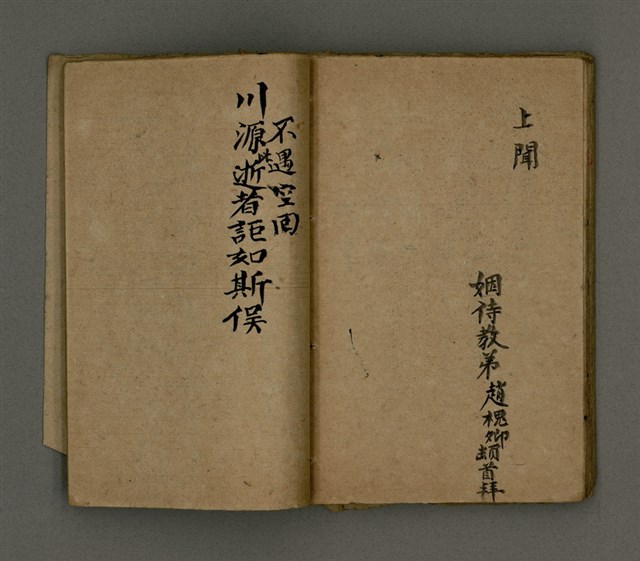 上聞
姻侍教弟趙槐卿頓首拜
不遇空回
川源逝者詎如斯俟